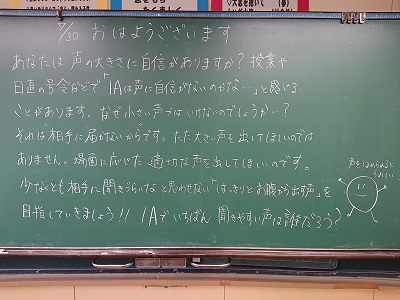 9/30 おはようございます
あなたは声の大きさに自信がありますか？授業や
日直の号令などで「1Aは声に自信がないのかな…」と感じる
ことがあります。なぜ小さい声ではいけないのでしょうか…？
それは相手に届かないからです。ただ大きい声を出してほしいのでは
ありません。場面に応じた適切な声を出してほしいのです。
少なくとも相手に聞きづらいなと思わせない「はっきりとお腹から出す声」を
目指していきましょう！！ 1Aでいちばん聞きやすい声は誰だろう？
声をほめられると
うれしい